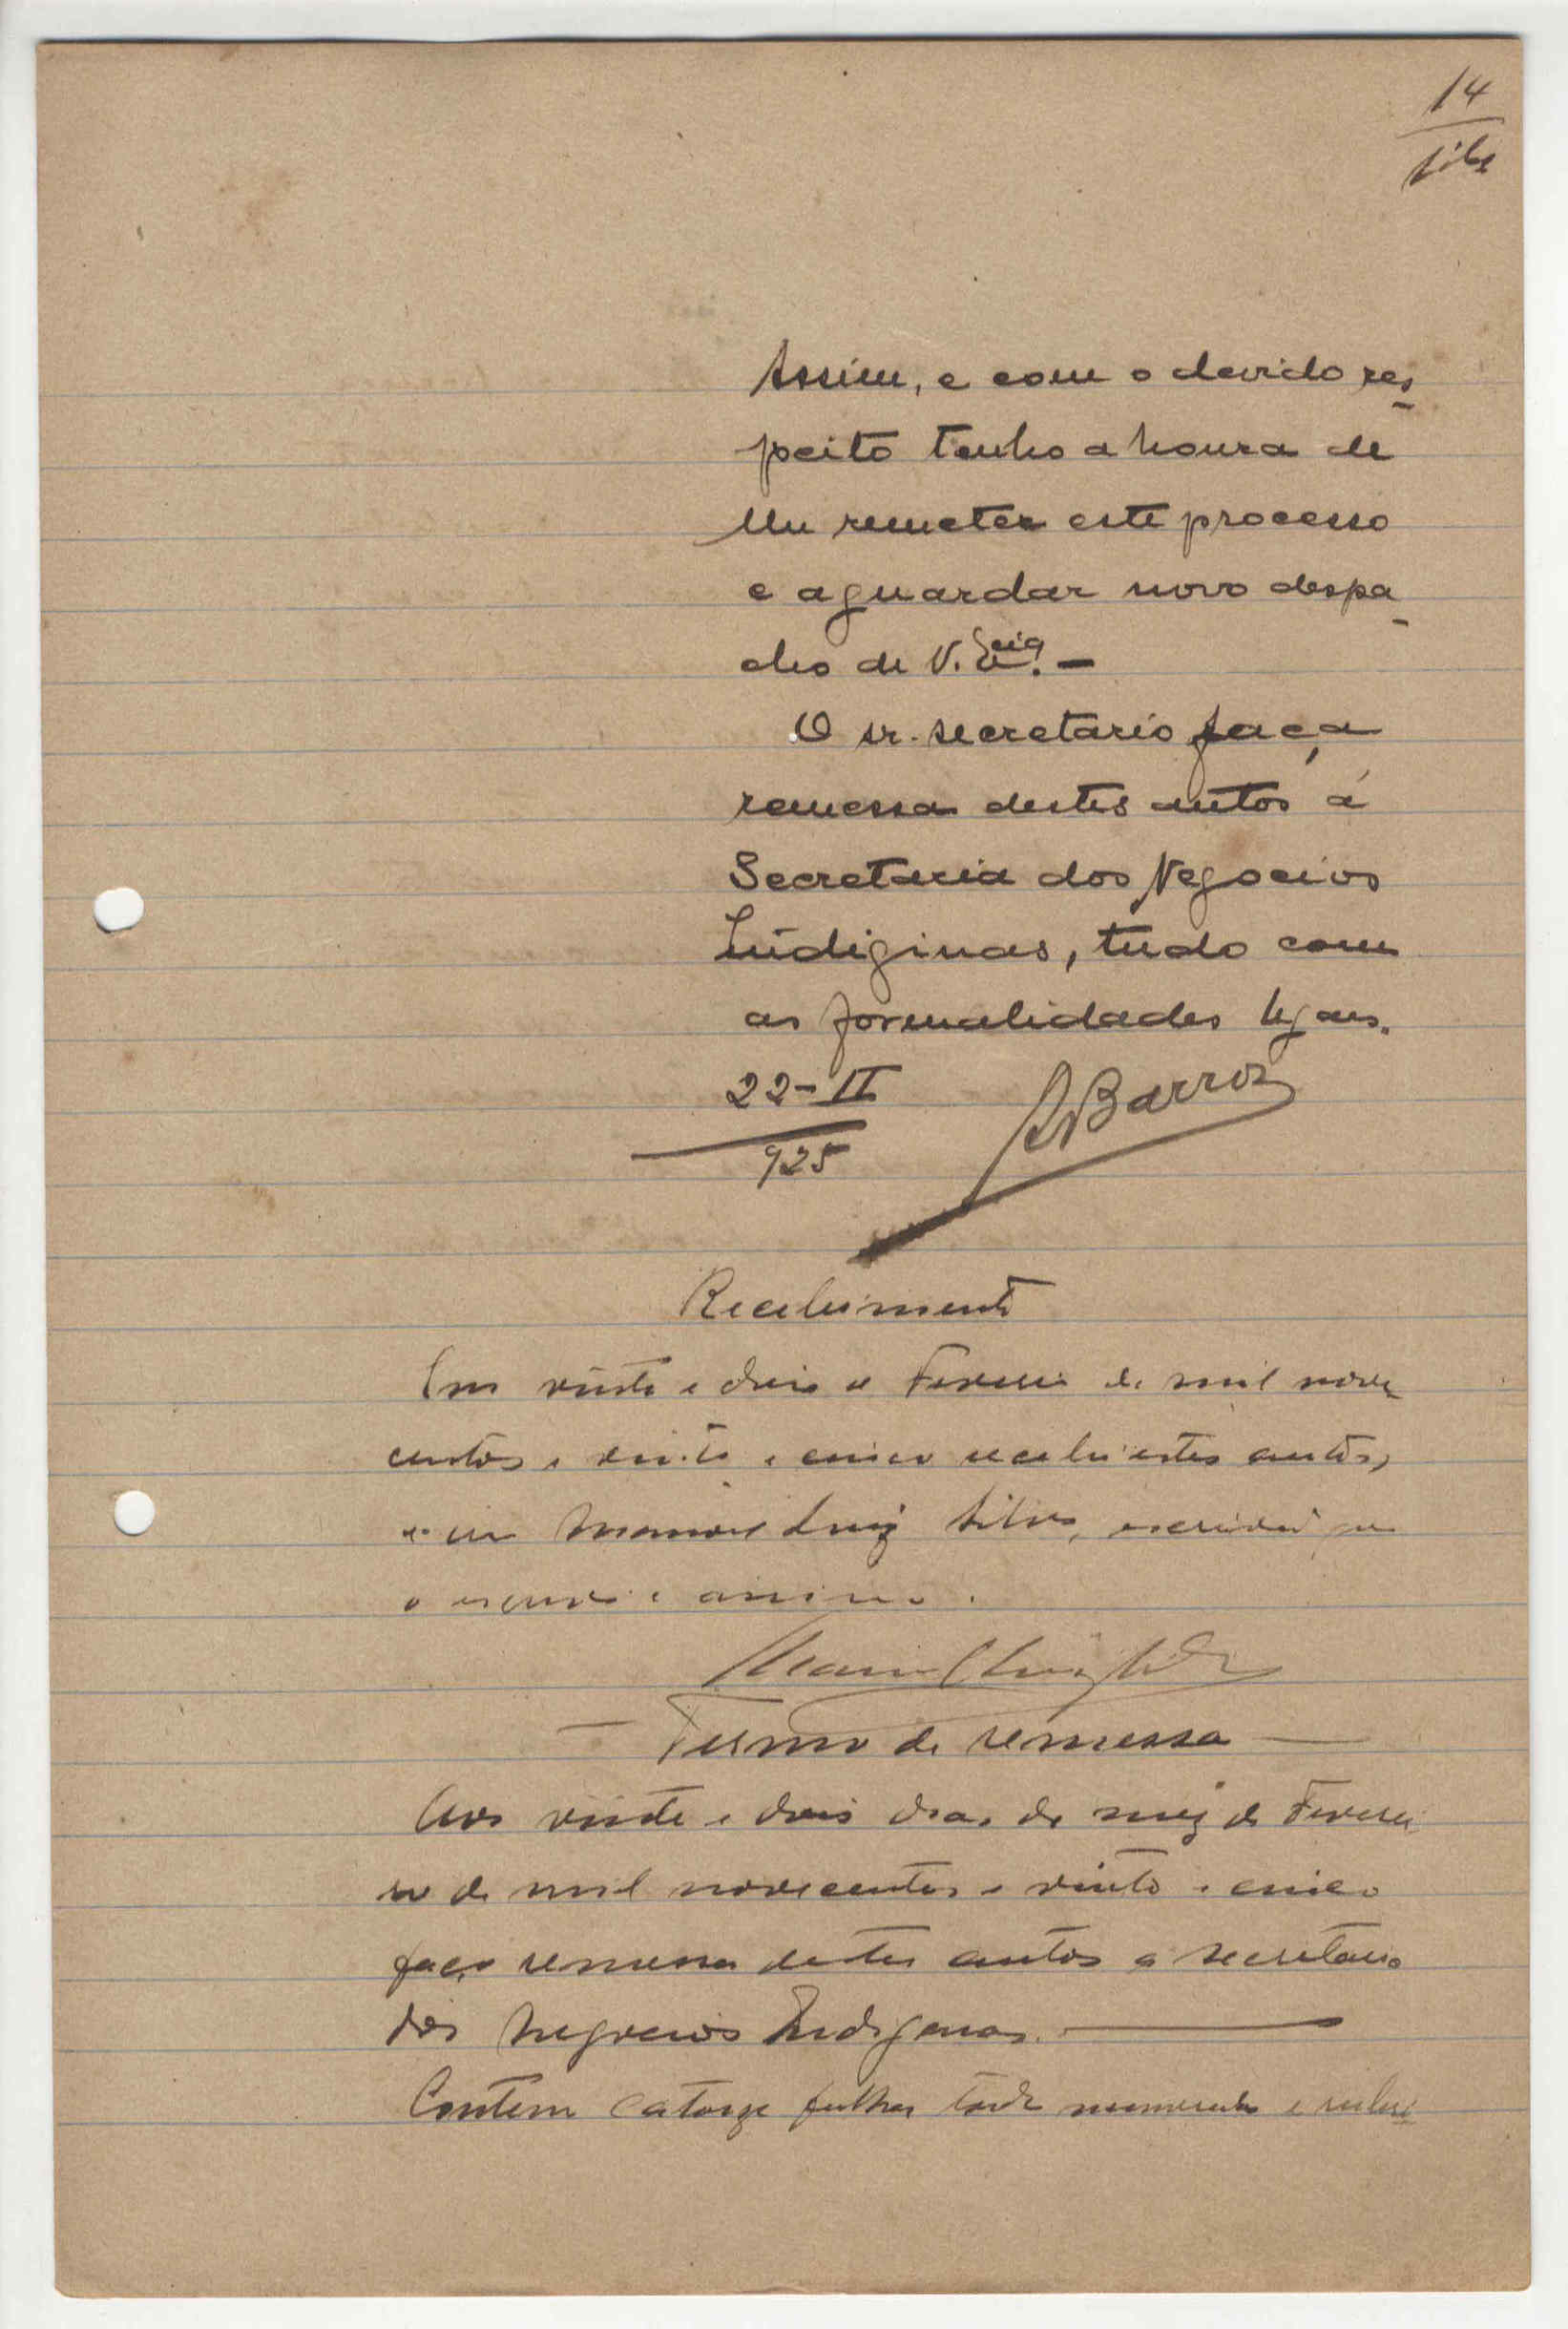 14
Silva
Assim, e com o devido res-
peito tenho a honra de
lhe remeter este processo
e aguardar novo despa-
cho de V. Exciª. —
O sr. secretario faça
remessa destes autos á
Secretaria dos Negocios
Indiginas, tudo com
as formalidades legaes.
22-II
925
Barros
Recebimento
Em vinte e dois de Fevereiro de mil nove
centos e vinte e cinco recebi estes autos,
e eu Manoel Luiz Silva, escrivão que
o escrevi e assino.
Manoel Luiz Silva
— Termo de remessa —
Aos vinte e dois dias do mez de Feverei
ro de mil novecentos e vinte e cinco
faço remessa destes autos a secretaria
dos Negocios Indigenas. —
Contem catorze folhas todas numeradas e rubri